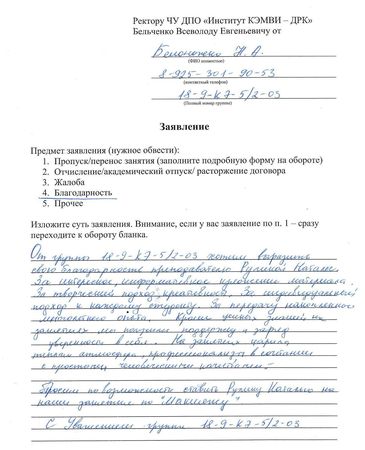 Ректору ЧУ ДПО «Институт КЭМВИ – ДРК»
Бельченко Всеволоду Евгеньевичу от
Белоножко Н. А.
(ФИО полностью)
8-925-301-90-53
(контактный телефон)
18-9-КЭ-5/2-03
(Полный номер группы)
Заявление
Предмет заявления (нужное обвести):
1. Пропуск/перенос занятия (заполните подробную форму на обороте)
2. Отчисление/академический отпуск/ расторжение договора
3. Жалоба
4. Благодарность
5. Прочее
Изложите суть заявления. Внимание, если у вас заявление по п. 1 – сразу
переходите к обороту бланка.
От группы 18-9-КЭ-5/2-03 хотим выразить
свою благодарность преподавателю Наталье.
За интересное, информативное материала.
За творческий подход, креативность. За индивидуальный
подход к каждому студенту. За передачу накопленного
опыта. Кроме ценных знаний, на
занятиях мы получили поддержку и заряд
уверенности в себе. На занятиях царила
теплая атмосфера, профессионализм в сочетании
с простыми человеческими качествами.
Просим по возможности ставить Наталью на
наши занятия по "Макияжу"
С Уважением группа 18-9-КЭ-5/2-03